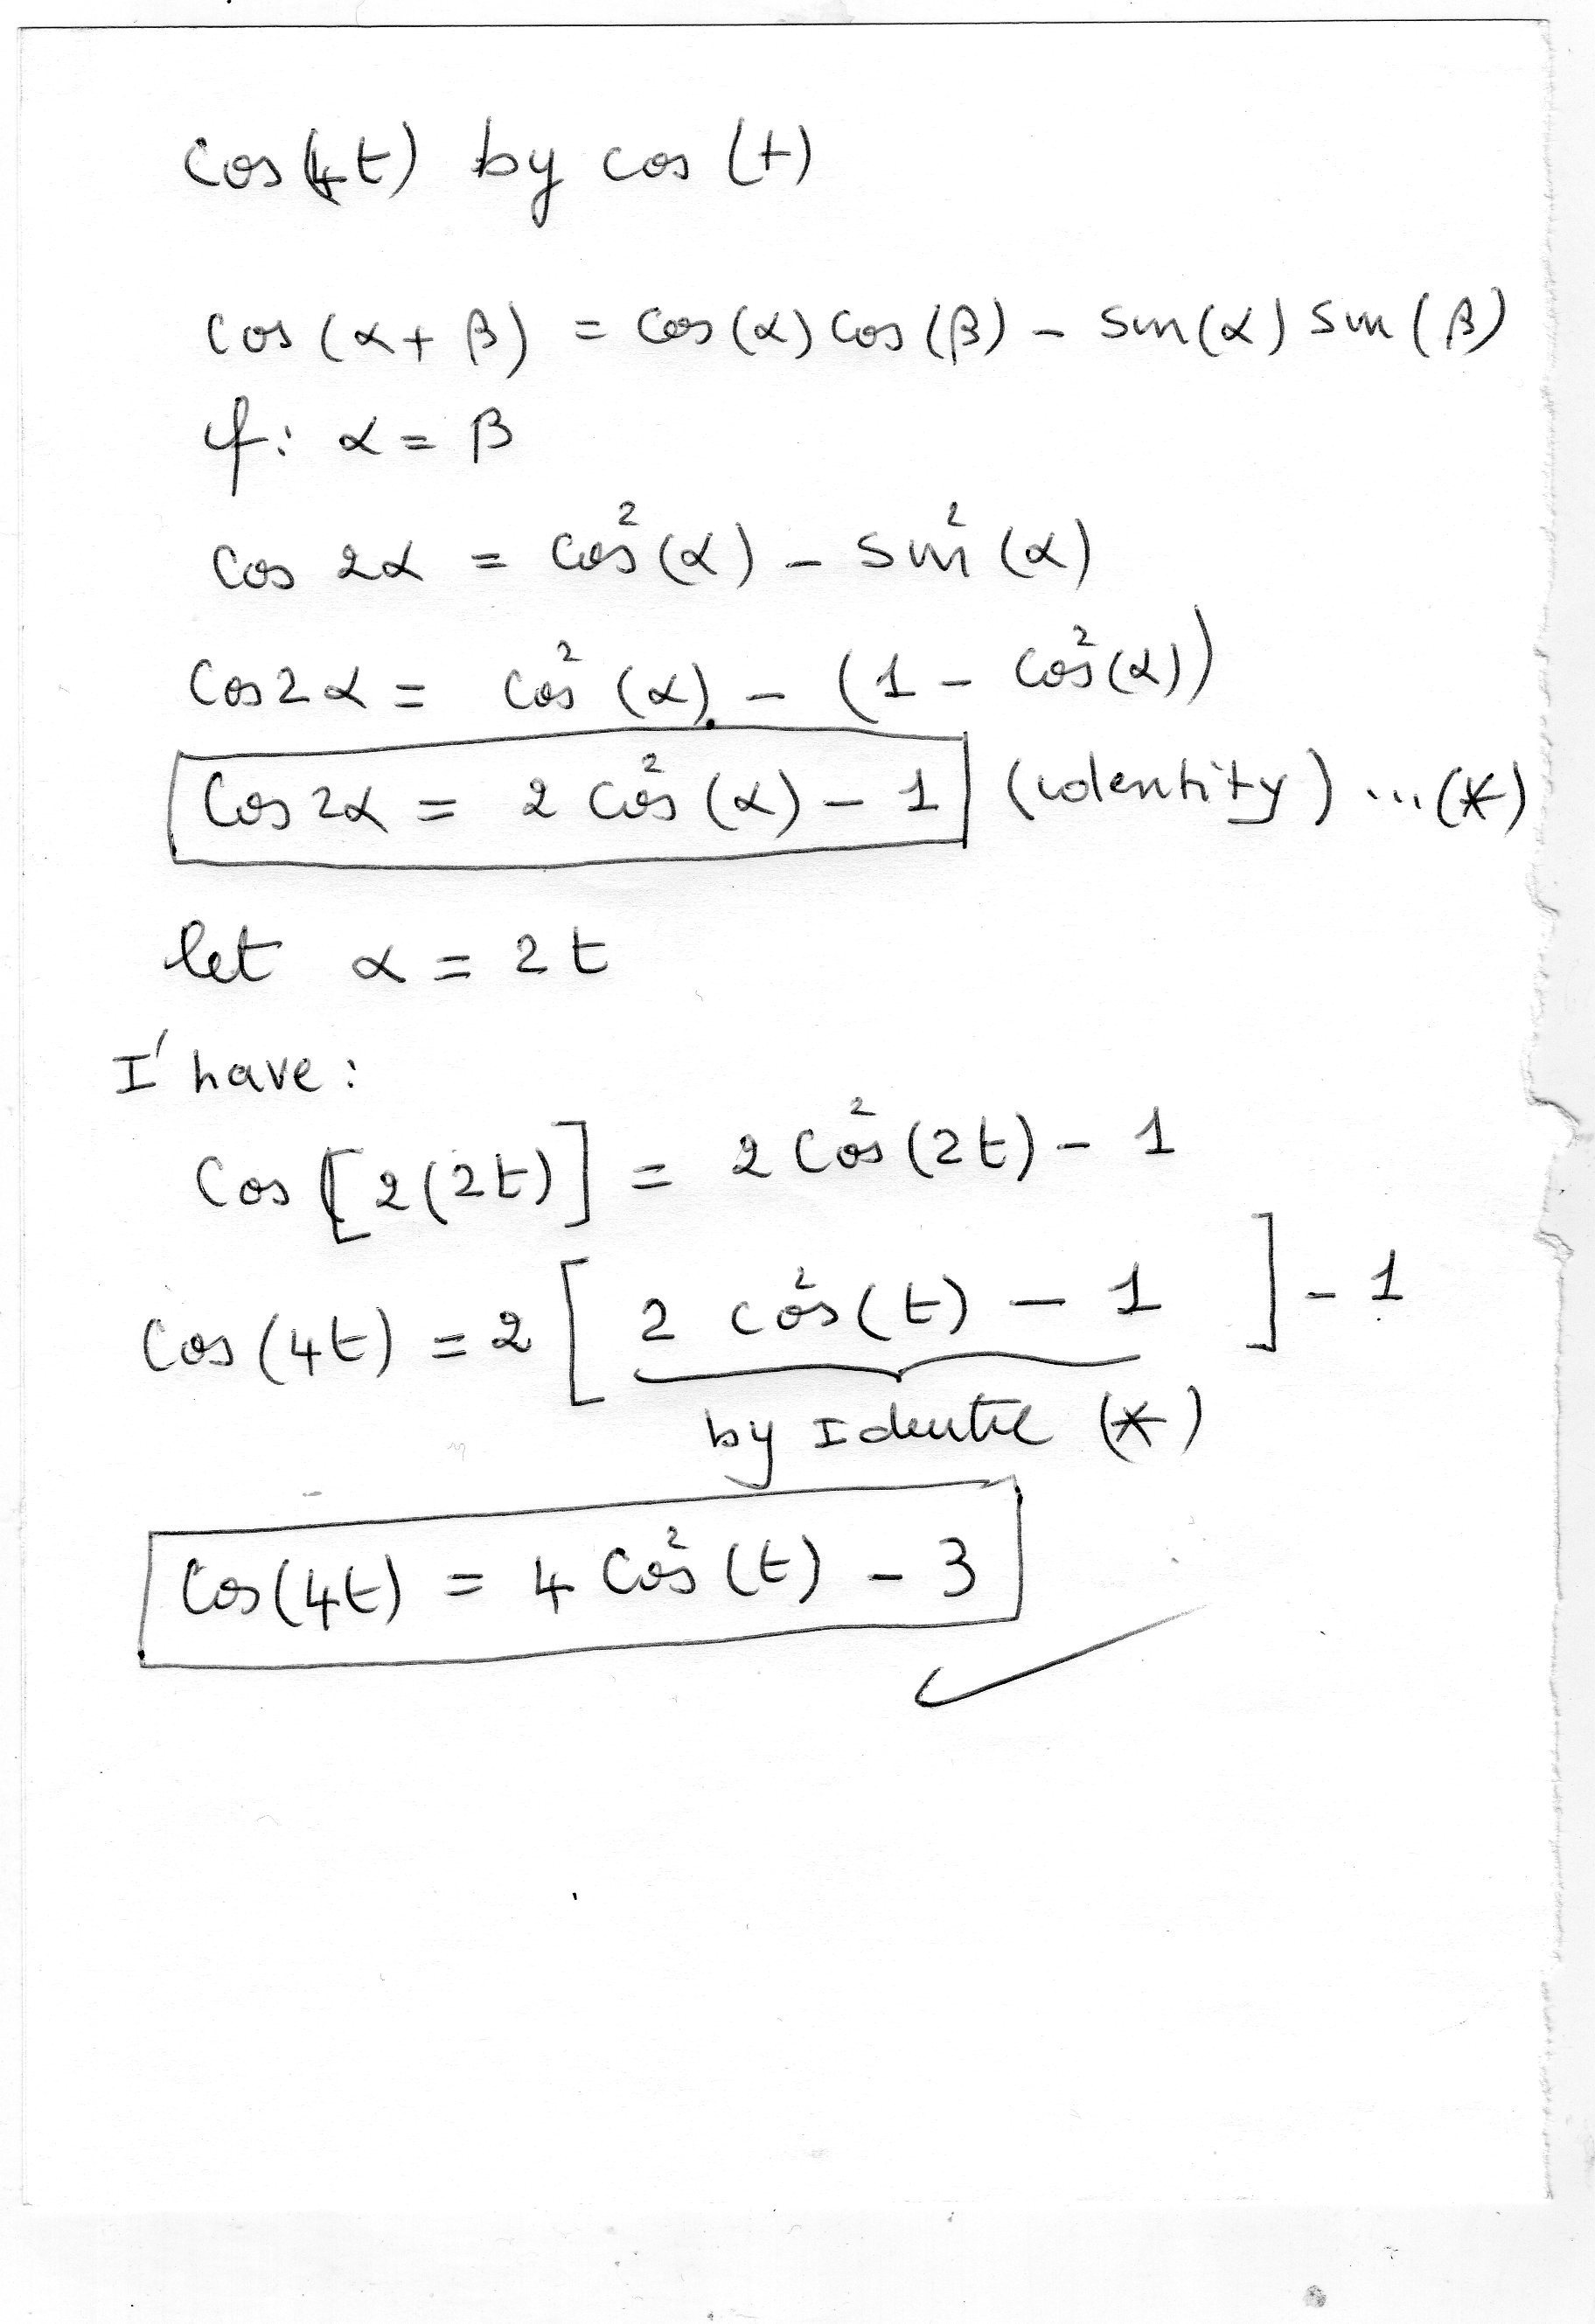 cos(4t) by cos (t)
cos (α+ β) = cos(α) cos(β) - sin(α) sin(β)
if: α = β
cos 2α = cos²(α) - sin²(α)
cos2α = cos²(α) - (1 - cos²(α))
cos2α = 2 cos²(α) - 1 (identity) ...(*)
let α = 2t
I' have:
cos [2(2t)] = 2 cos²(2t) - 1
cos(4t) = 2 [ 2 cos²(t) - 1 ] - 1
by Identie (*)
cos(4t) = 4 cos²(t) - 3